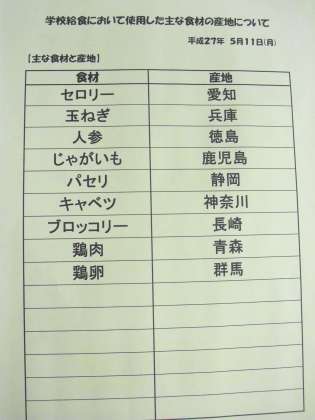 学校給食において使用した主な食材の産地について
平成27年 5月11日(月)
【主な食材と産地】
食材 産地
セロリー 愛知
玉ねぎ 兵庫
人参 徳島
じゃがいも 鹿児島
パセリ 静岡
キャベツ 神奈川
ブロッコリー 長崎
鶏肉 青森
鶏卵 群馬